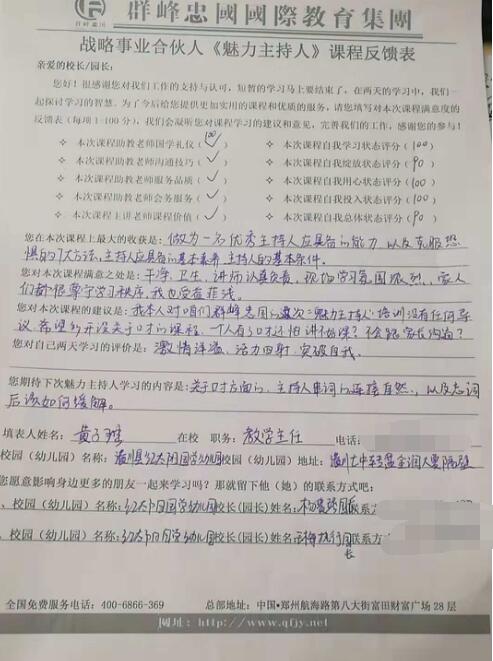 群峰忠國國際教育集團
战略事业合伙人《魅力主持人》课程反馈表
亲爱的校长/园长：
您好！很感谢您对我们工作的支持与认可，短暂的学习马上要结束了，在两天的学习中，我们一
起探讨学习的智慧。为了今后给您提供更加实用的课程和优质的服务，请您填写对本次课程满意度的
反馈表（每项1-100分），我们会凝听您对课程学习的建议和意见，完善我们的工作，感谢您的参与！
本次课程助教老师国学礼仪（100✓） 本次课程自我学习状态评分（100）
本次课程助教老师沟通技巧（✓） 本次课程自我绽放状态评分（90）
本次课程助教老师服务品质（✓） 本次课程自我用心状态评分（100）
本次课程助教老师会务服务（✓） 本次课程自我投入状态评分（100）
本次课程主讲老师课程价值（✓） 本次课程自我总体状态评分（90）
您在本次课程上最大的收获是：做为一名优秀主持人应具备的能力，以及克服恐
惧的7大方法，主持人应具备的基本素养，主持人的基本条件。
您对本次课程满意之处是：干净、卫生，讲师认真负责，现场学习氛围浓烈，家人
们都很遵守学习秩序，我也受益匪浅。
您对本次课程的建议是：我本人对咱们群峰忠国的这次《魅力主持人》培训没有任何异
议，希望多开设关于口才的课程，一个人有了口才还怕讲不好课？不会跟家长沟通？
您对自己两天学习的评价是：激情洋溢，活力四射，突破自我。
您期待下次魅力主持人学习的内容是：关于对方面的，主持人串词的连接自然，以及忘词
后该如何缓解。
填表人姓名：黄 在校 职务：教学主任 电话：
校园（幼儿园）名称：红太阳国学幼儿园 校园（幼儿园）地址：
您愿意影响身边更多的朋友一起来学习吗？那就留下他（她）的联系方式吧：
、校园（幼儿园）名称：红太阳国学幼儿园 校长（园长）姓名：杨 联系方
、校园（幼儿园）名称：红太阳国学幼儿园 校长（园长）姓名：梅 执行园长 联系方
全国免费服务电话：400-6866-369 总部地址：中国•郑州航海路第八大街富田财富广场28层
网址：http://www.qfjy.net